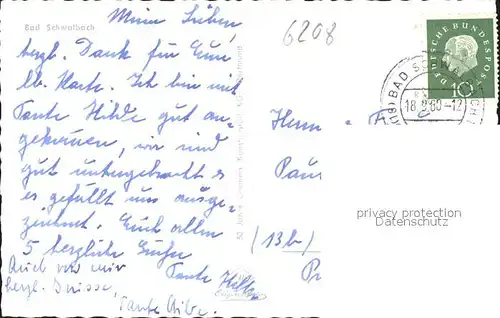 Bad Schwalbach
6208
Meine Lieben,
herzl. Dank für Eure
lb. Karte. Ich bin mit
Tante Hilde gut an-
gekommen, wir sind
gut untergebracht u
es gefällt uns ausge-
zeichnet. Euch allen
5 herzliche Grüße
Tante
Auch von mir
herzl. Grüsse,
Tante
Herrn
(13b)
DEUTSCHE BUNDESPOST
10
BAD
60-12
privacy protection
Datenschutz